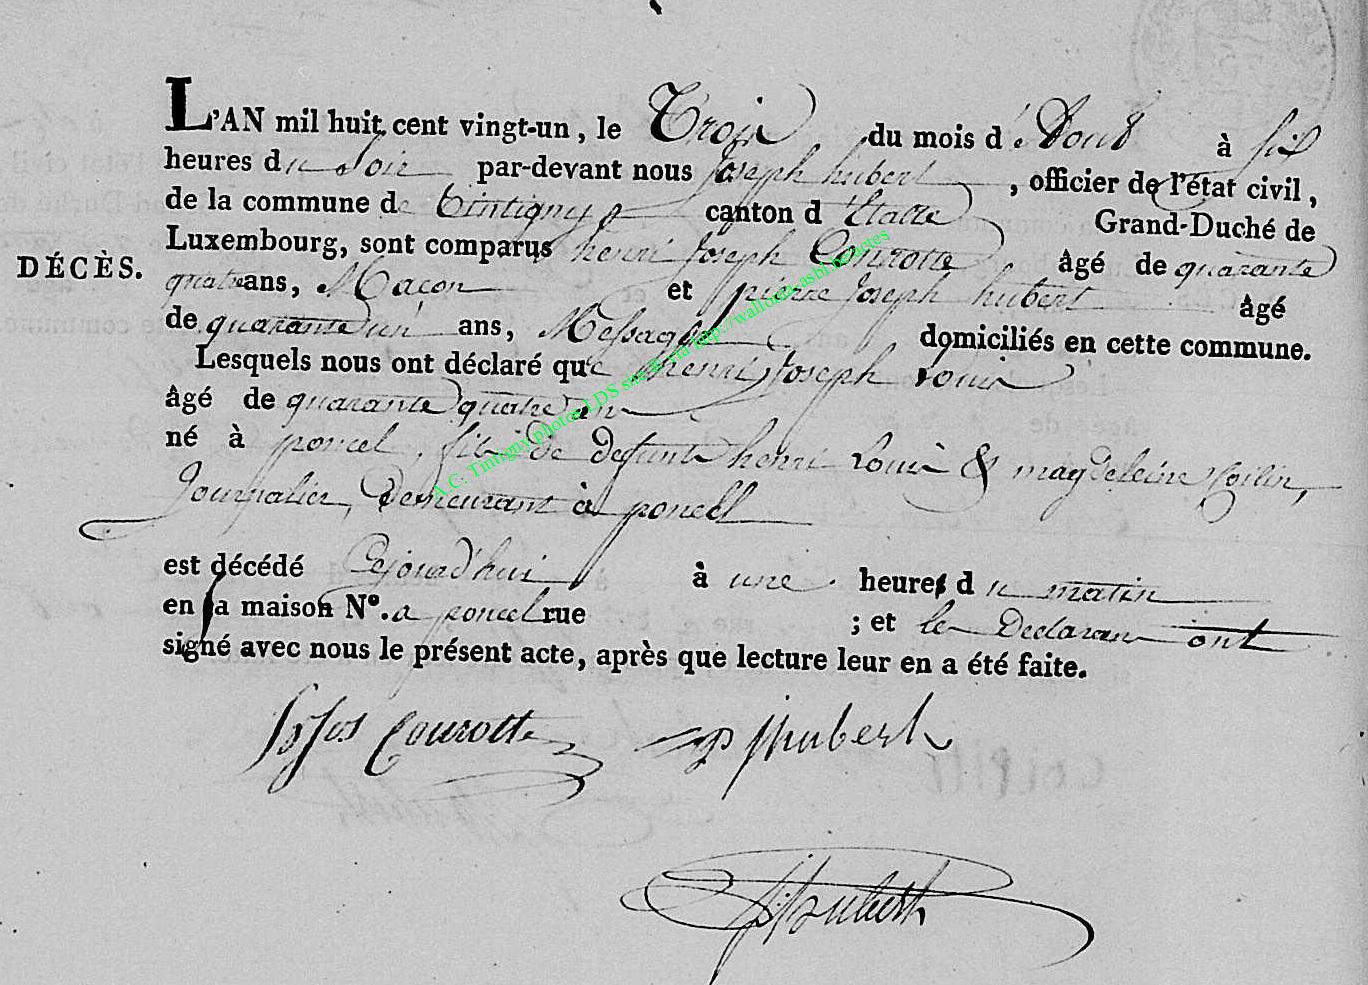 L'AN mil huit cent vingt-un, le Trois du mois d'Aout à six
heures du Soir par-devant nous Joseph hubert, officier de l'état civil,
de la commune de Tintigny canton d'Etalle Grand-Duché de
Luxembourg, sont comparus henri Joseph Courotte âgé de quarante
DÉCÈS.
quatre ans, Maçon et pierre Joseph hubert âgé
de quarante un ans, Messager domiciliés en cette commune.
Lesquels nous ont déclaré que henri Joseph Louis
âgé de quarante quatre ans
né à poncel, fils de defunts henri Louis & magdeleine Collin,
Journalier, Demeurant à poncell
est décédé Cejourd'hui à une heure du matin
en sa maison N°. a poncel rue ; et les Declarans ont
signé avec nous le présent acte, après que lecture leur en a été faite.
Courotte hubert
hubert
A.C. Tintigny photos LDS site via http://wallonia-asbl.be/actes